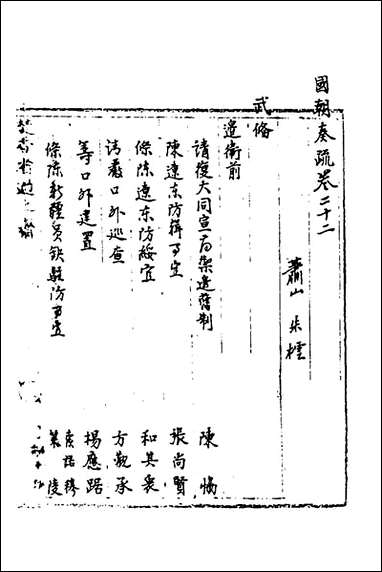 國朝奏疏卷二十二
蕭山 朱橒
武備
邊衛前
請復大同宣府禦邊舊制 陳 惕
陳遼東防緝事宜 張尚賢
條陳遼東防綏宜 和其衷
請嚴口外巡查 方觀承
等口外建置 楊應踞
條陳新疆員缺駐防事宜 索諾穆策淩